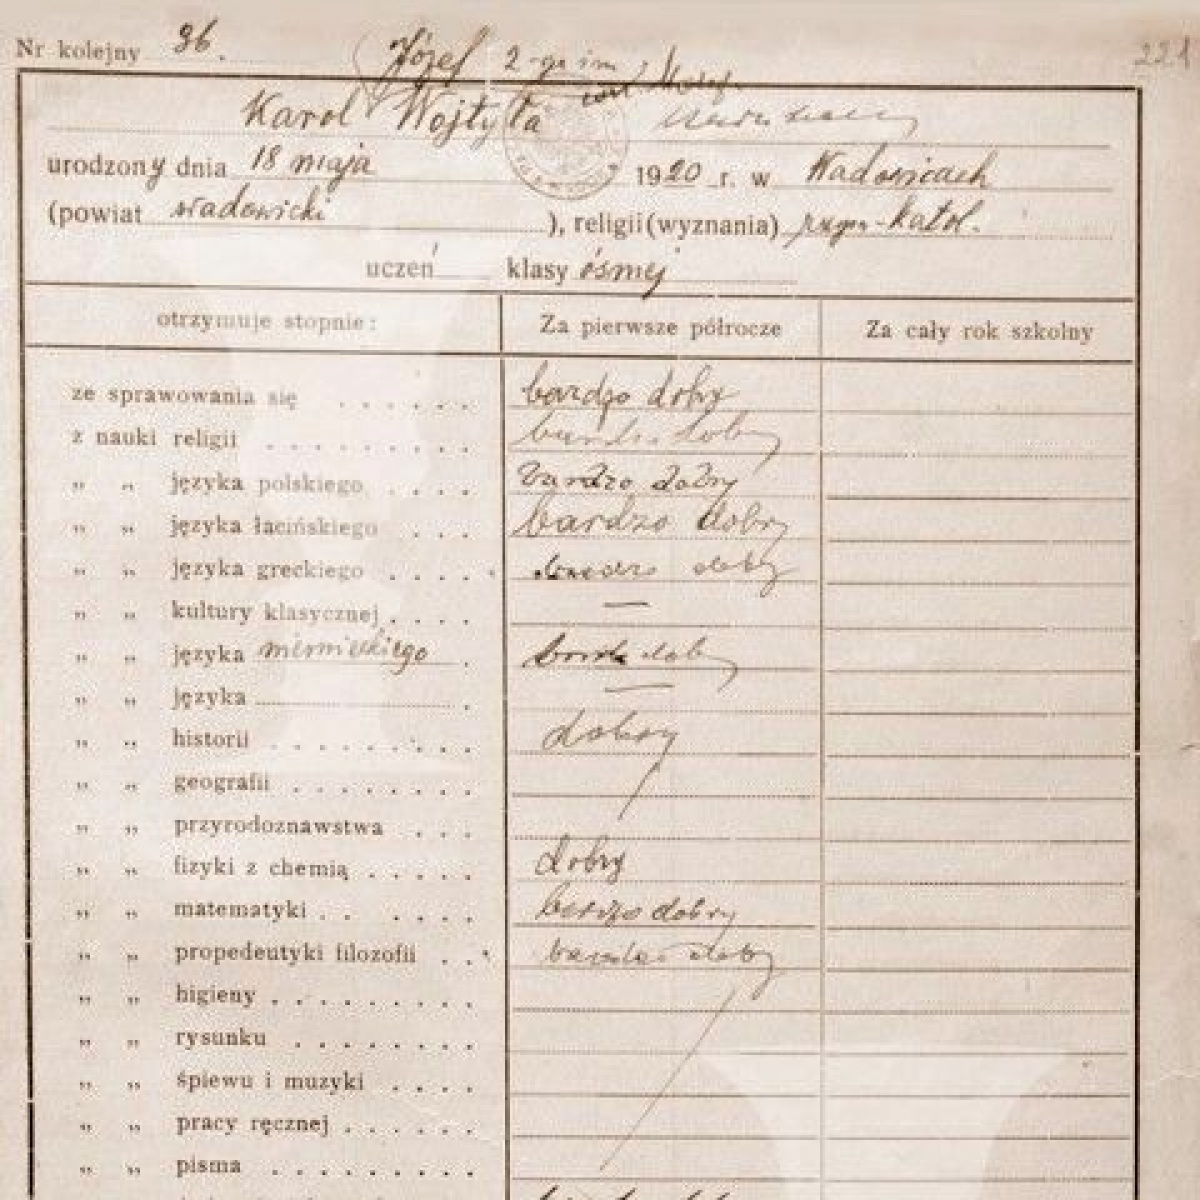 Nr kolejny 36. Józef 2-ge im 221
Karol Wojtyła
urodzony dnia 18 maja 1920 r. w Wadowicach
(powiat wadowicki ), religii (wyznania) rzym-katol.
uczeń klasy ósmej
otrzymuje stopnie: Za pierwsze półrocze Za cały rok szkolny
ze sprawowania się . . . . . . bardzo dobry
z nauki religii . . . . . . . . . bardzo dobry
„ „ języka polskiego . . . . bardzo dobry
„ „ języka łacińskiego . . . bardzo dobry
„ „ języka greckiego . . . . bardzo dobry
„ „ kultury klasycznej . . . . —
„ „ języka niemieckiego . bardzo dobry
„ „ języka . —
„ „ historii . . . . . . . . . dobry
„ „ geografii . . . . . . . .
„ „ przyrodoznawstwa . . .
„ „ fizyki z chemią . . . . . dobry
„ „ matematyki . . . . . . bardzo dobry
„ „ propedeutyki filozofii . . bardzo dobry
„ „ higieny . . . . . . . . .
„ „ rysunku . . . . . . . .
„ „ śpiewu i muzyki . . . .
„ „ pracy ręcznej . . . . . .
„ „ pisma . . . . . . . . .